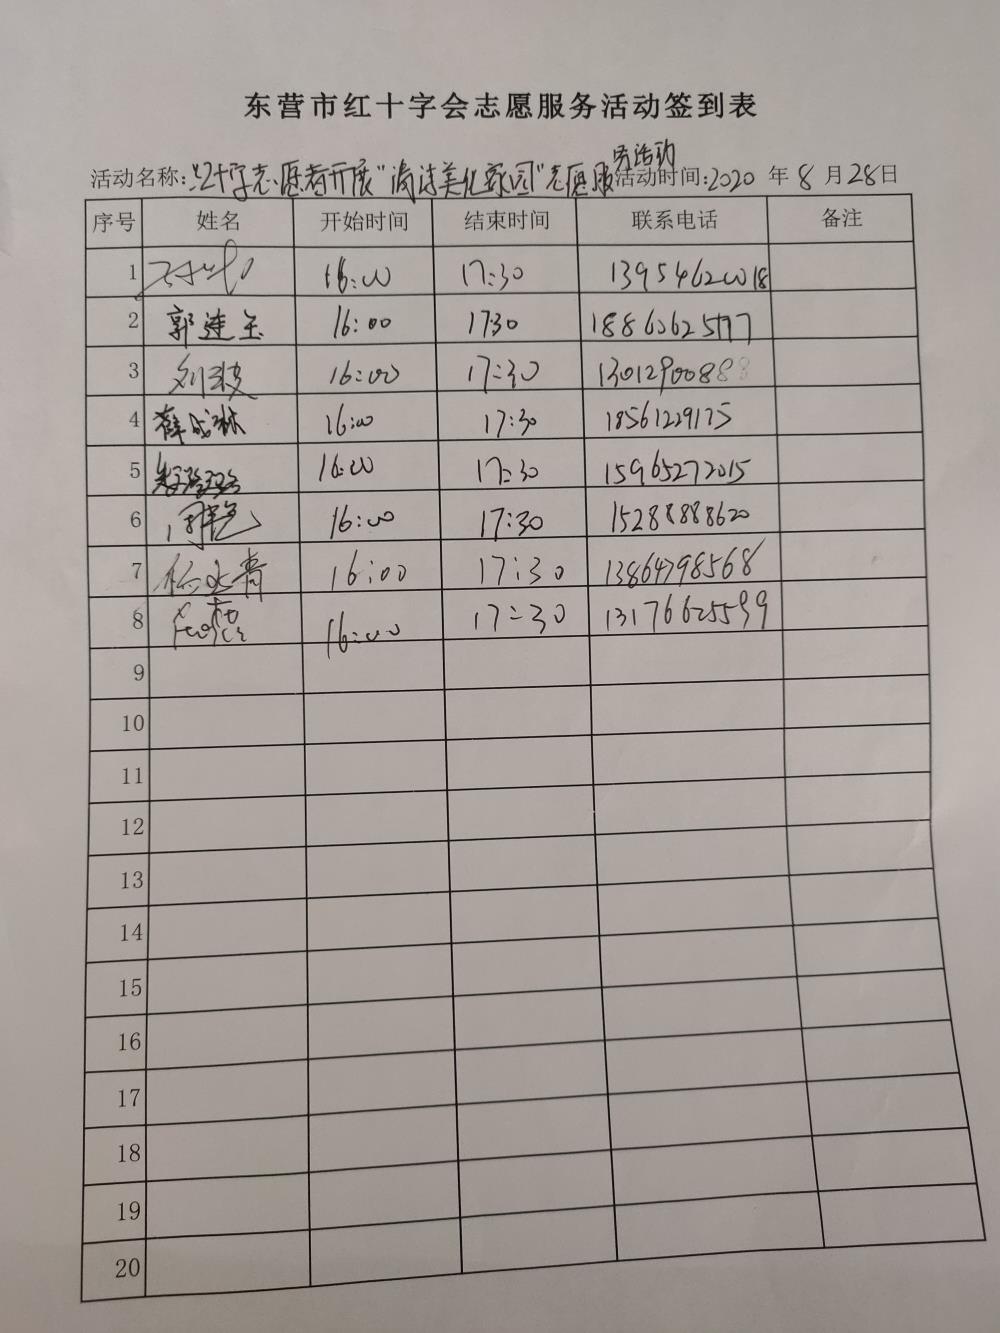 东营市红十字会志愿服务活动签到表
活动名称:红十字志愿者开展“清洁美化家园”志愿服务活动 活动时间:2020 年 8 月 28 日
序号 姓名 开始时间 结束时间 联系电话 备注
1 16:00 17:30 13954620018
2 郭建玉 16:00 17:30 18860625197
3 刘波 16:00 17:30 13012900888
4 薛成琳 16:00 17:30 18561229175
5 16:00 17:30 15965272015
6 周艳 16:00 17:30 15288888620
7 16:00 17:30 13864798568
8 16:00 17:30 13176625599
9
10
11
12
13
14
15
16
17
18
19
20